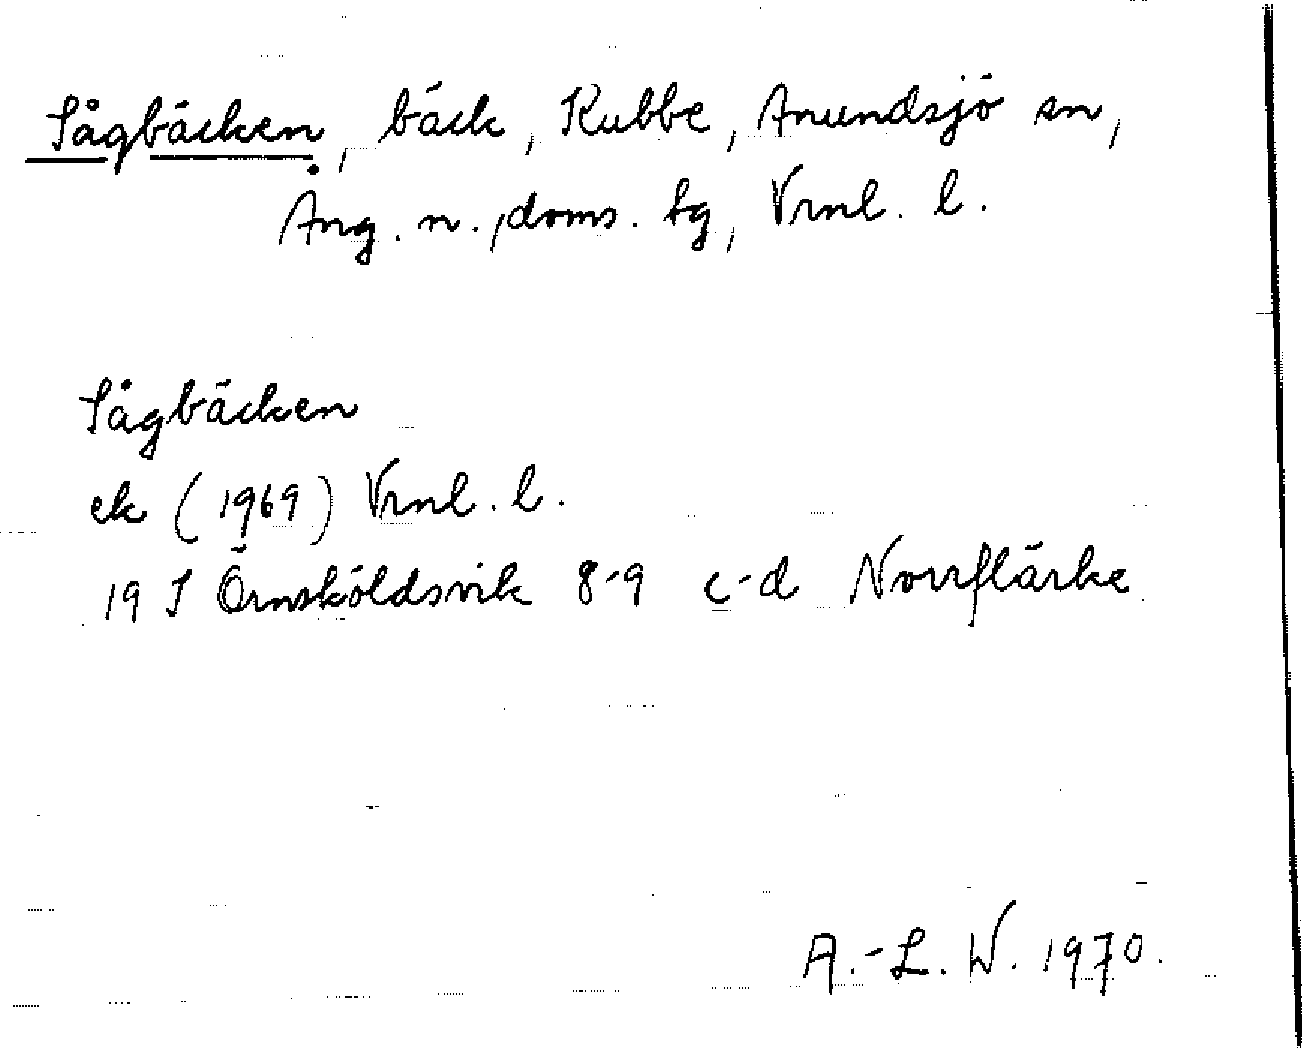 Sågbäcken, bäck, Kubbe, Anundsjö sn,
Ång. n., doms. tg, Vrnl. l.
Sågbäcken
ek (1969) Vrnl. l.
19 I Örnsköldsvik 8-9 c-d Norrflärke
A.-L. W. 1970.